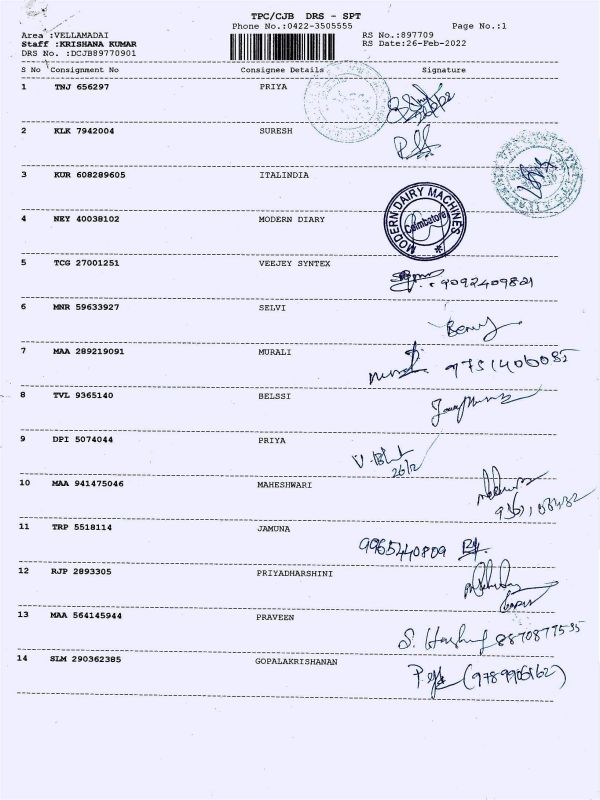 TPC/CJB DRS - SPT
Phone No.:0422-3505555 Page No.:1
Area :VELLAMADAI RS No.:897709
Staff :KRISHANA KUMAR RS Date:26-Feb-2022
DRS No. :DCJB89770901
S No Consignment No Consignee Details Signature
1 TNJ 656297 PRIYA
2 KLK 7942004 SURESH
3 KUR 608289605 ITALINDIA
MODERN DAIRY MACHINES
Coimbatore
4 NEY 40038102 MODERN DIARY
5 TCG 27001251 VEEJEY SYNTEX
9092409821
6 MNR 59633927 SELVI
7 MAA 289219091 MURALI
8 TVL 9365140 BELSSI
9 DPI 5074044 PRIYA
26/2
10 MAA 941475046 MAHESHWARI
11 TRP 5518114 JAMUNA
9965440809
12 RJP 2893305 PRIYADHARSHINI
13 MAA 564145944 PRAVEEN
14 SLM 290362385 GOPALAKRISHANAN